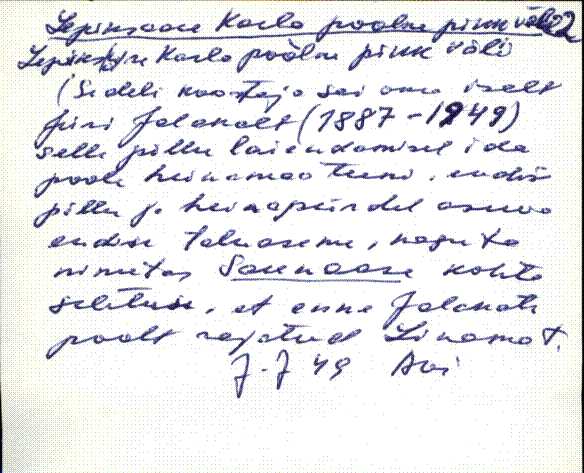 Lepiksaare Karla poolne pikk väli
Lepiksaare Karla poolne pikk väli
(Sedeli koostaja sai oma isalt
Juri Jalakalt (1887-1949)
selle põllu laiendamisel ida
poole heinamaa teeni, endis
põllu ja heinapiirdel asuva
endise taluaseme, nagu ta
nimetas Saunaase kohta
seletuse, et enne Jalakate
poolt rajatud Linamat.
J. J 49